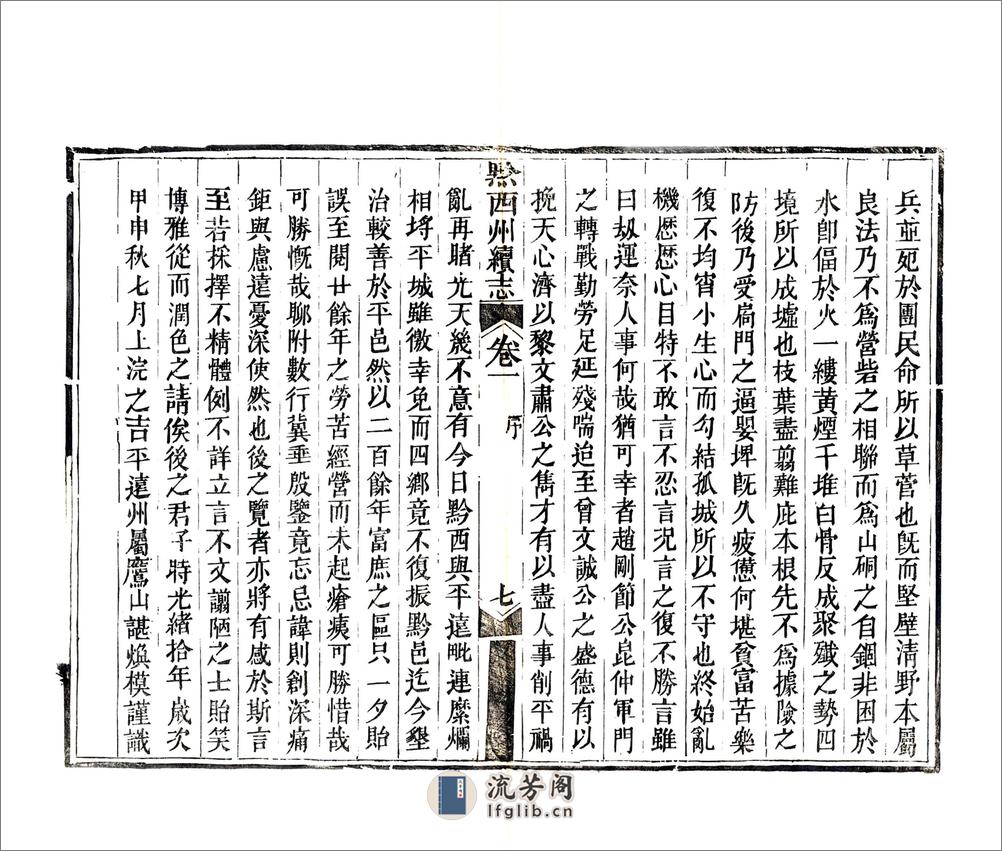 兵並宛於團民命所以草菅也旣而堅壁清野本屬
良法乃不爲營砦之相聯而爲山硐之自錮非困於
水卽偪於火一縷黃煙千堆白骨反成聚殲之勢四
境所以成墟也枝葉盡翦難庇本根先不爲據險之
防後乃受扃門之逼嬰埤旣久疲憊何堪貧富苦樂
復不均宵小生心而勾結孤城所以不守也終始亂
機歷歷心目特不敢言不忍言況言之復不勝言雖
曰刼運奈人事何哉猶可幸者趙剛節公昆仲軍門
之轉戰勤勞足延殘喘迨至曾文誠公之盛德有以
挽天心濟以黎文肅公之雋才有以盡人事削平禍
黔西州續志
卷一
序
七
亂再睹光天幾不意有今日黔西與平遠毗連糜爛
相埒平城雖徼幸免而四鄉竟不復振黔邑迄今墾
治較善於平邑然以二百餘年富庶之區只一夕貽
誤至閱廿餘年之勞苦經營而未起瘡痍可勝惜哉
可勝慨哉聊附數行冀垂殷鑒竟忘忌諱則創深痛
鉅與慮遠憂深使然也後之覽者亦將有感於斯言
至若採擇不精體例不詳立言不文譾陋之士貽笑
博雅從而潤色之請俟後之君子時光緒拾年歲次
甲申秋七月上浣之吉平遠州屬鷹山諶煥模謹識
流芳阁
lfglib.cn